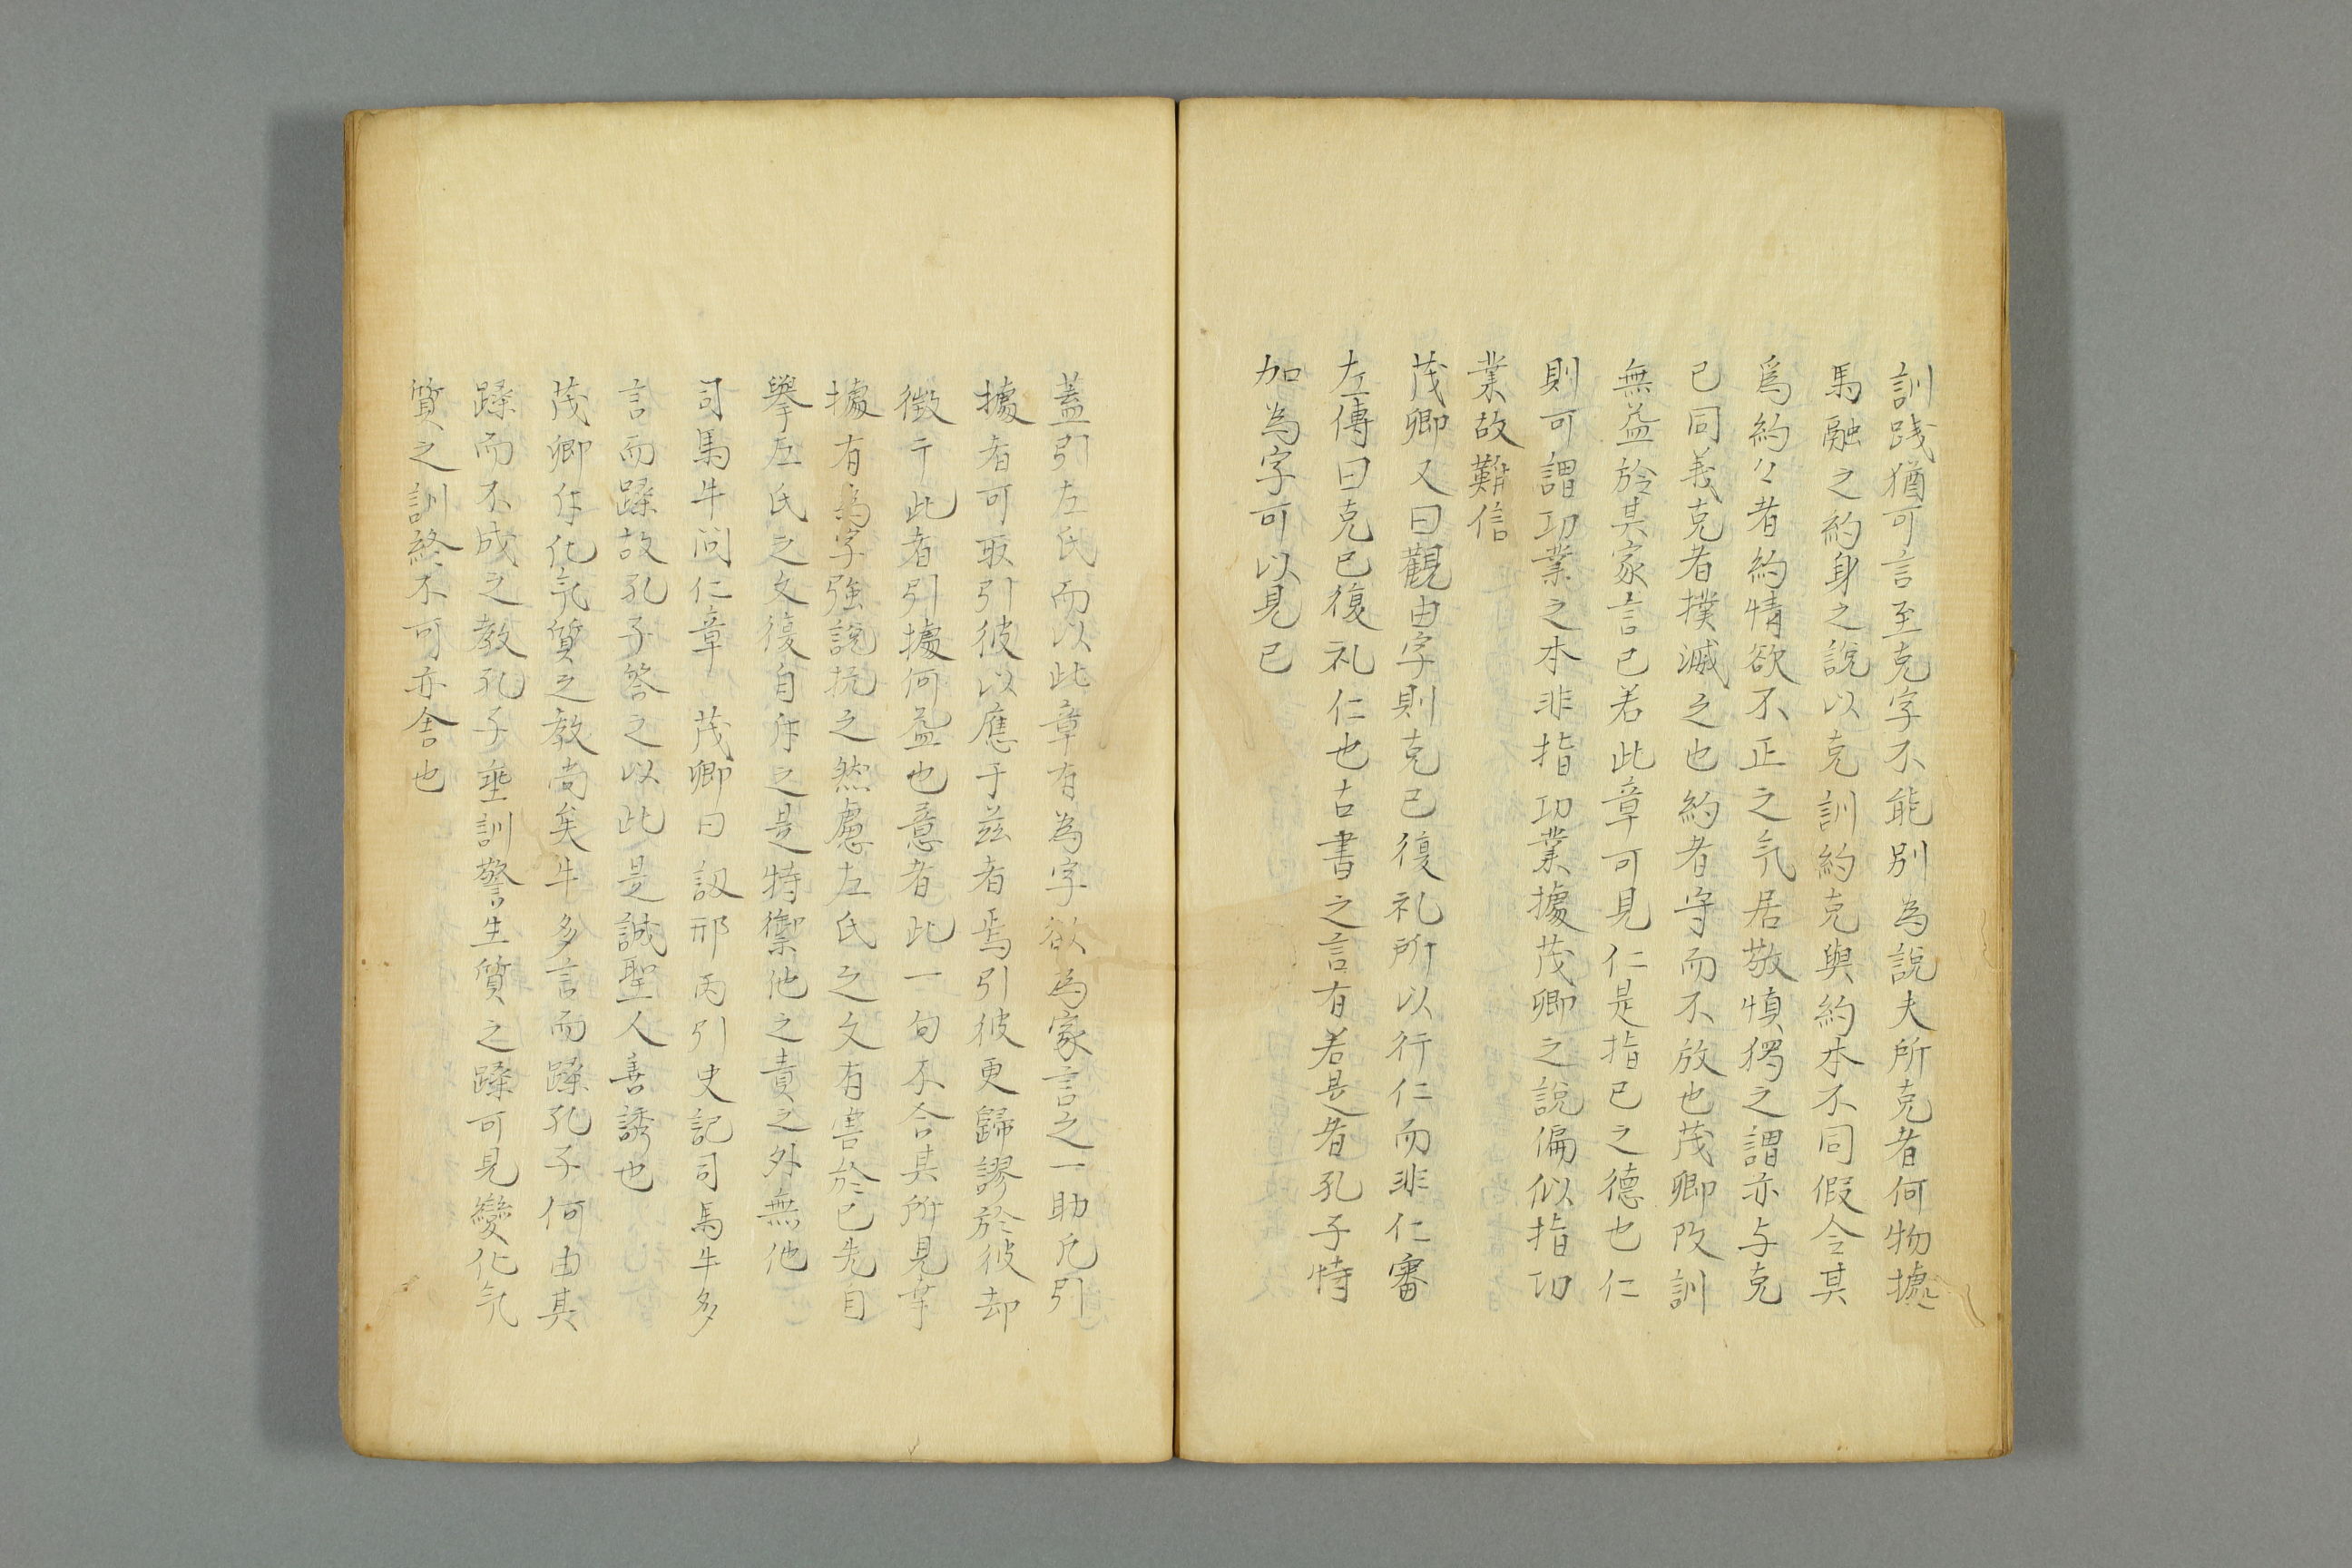 訓践猶可言至克字不能別為說夫所克者何物據
馬融之約身之說以克訓約克與約本不同假令其
爲約々者約情欲不正之気居敬慎獨之謂亦与克
己同義克者撲滅之也約者守而不放也茂卿改訓
無益於其家言已若此章可見仁是指己之德也仁
則可謂功業之本非指功業據茂卿之說偏似指功
業故難信
茂卿又曰觀由字則克己復礼所以行仁而非仁審
左傳曰克己復礼仁也古書之言有若是者孔子特
加為字可以見已
蓋引左氏而以此章有為字欲為家言之一助凡引
據者可取引彼以應于茲者焉引彼更歸謬於彼却
徵于此者引據何益也意者此一句不合其所見幸
據有為字強說抗之然慮左氏之文有害於己先自
擧左氏之文復自斥之是特禦他之責之外無他
司馬牛問仁章 茂卿曰訒邢昺引史記司馬牛多
言而躁故孔子答之以此是誠聖人善誘也
茂卿斥化気質之教尚矣牛多言而躁孔子何由其
躁而不成之教孔子垂訓警生質之躁可見變化気
質之訓終不可亦舎也